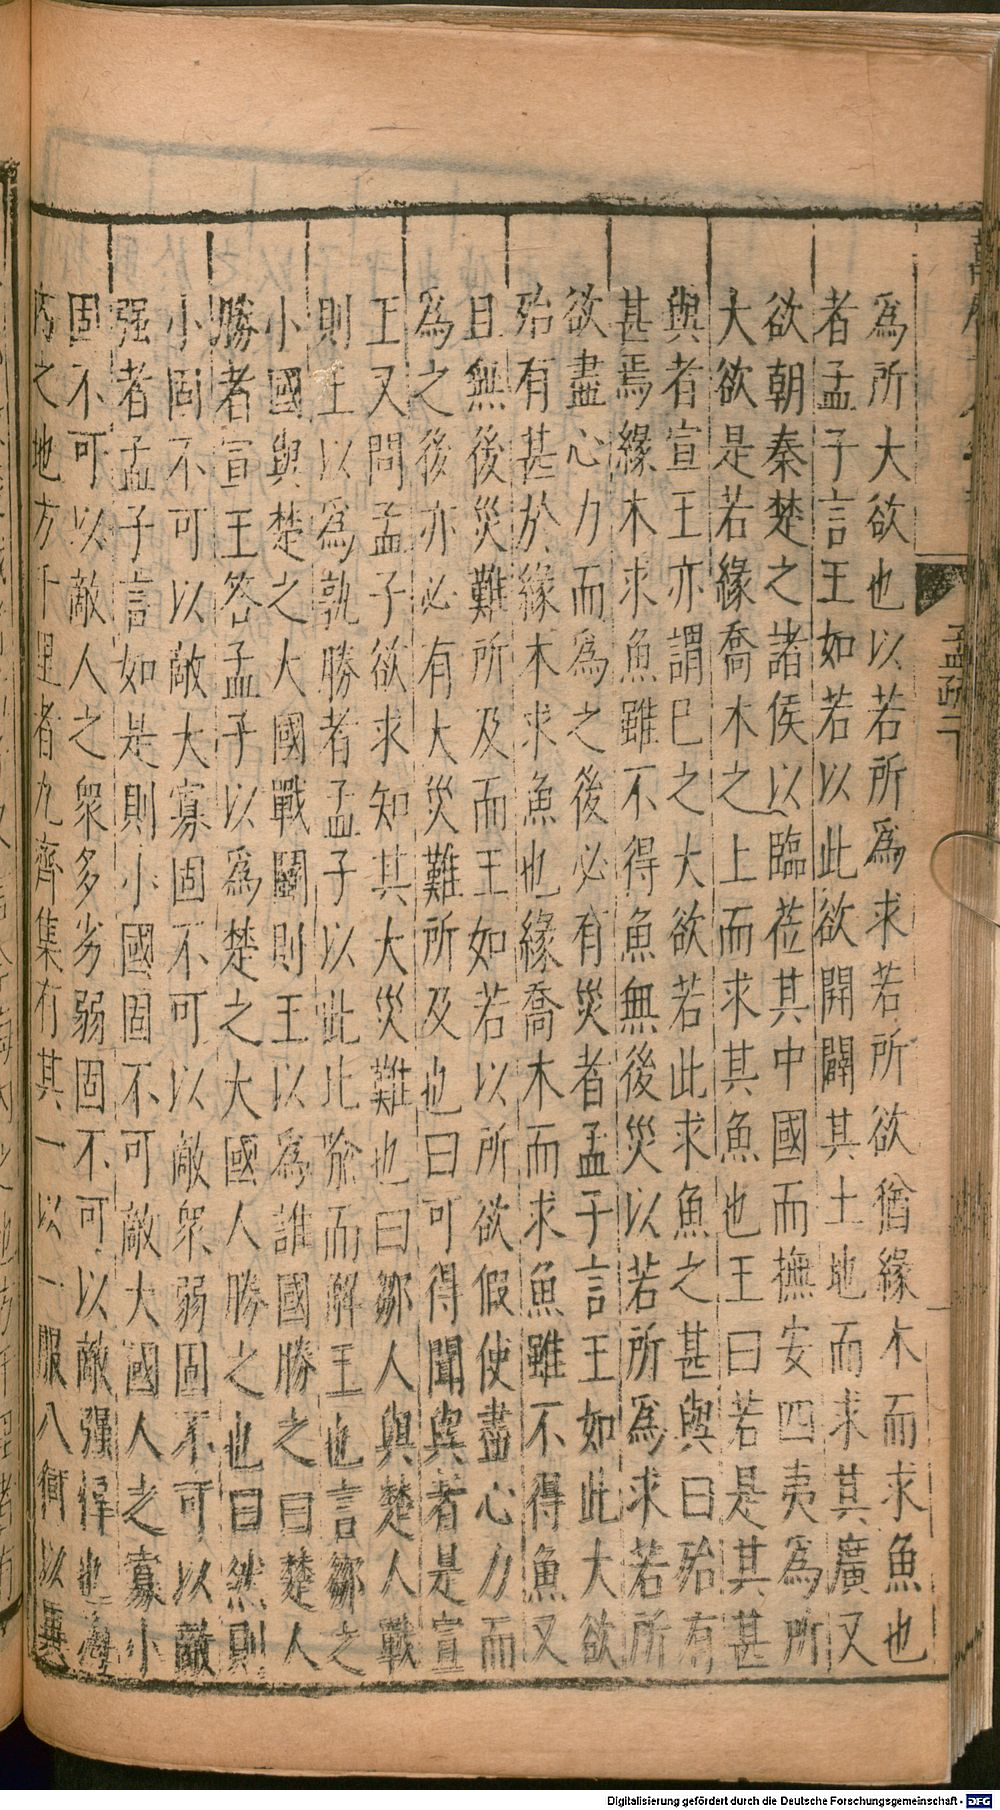 爲所大欲也以若所爲求若所欲猶緣木而求魚也
者孟子言王如若以此欲開闢其土地而求其廣又
欲朝秦楚之諸侯以臨莅其中國而撫安四夷爲所
大欲是若緣喬木之上而求其魚也王曰若是其甚
與者宣王亦謂已之大欲若此求魚之甚與曰殆有
甚焉緣木求魚雖不得魚無後災以若所爲求若所
欲盡心力而爲之後必有災者孟子言王如此大欲
殆有甚於緣木求魚也緣喬木而求魚雖不得魚又
且無後災難所及而王如若以所欲假使盡心力而
爲之後亦必有大災難所及也曰可得聞與者是宣
王又問孟子欲求知其大災難也曰鄒人與楚人戰
則王以爲孰勝者孟子以此比喩而解王也言鄒之
小國與楚之大國戰鬭則王以爲誰國勝之曰楚人
勝者宣王答孟子以爲楚之大國人勝之也曰然則
小固不可以敵大寡固不可以敵衆弱固不可以敵
强者孟子言如是則小國固不可敵大國人之寡小
固不可以敵人之衆多劣弱固不可以敵强悍也海
内之地方千里者九齊集有其一以一服八何以異
孟疏一
Digitalisierung gefördert durch die Deutsche Forschungsgemeinschaft - DFG